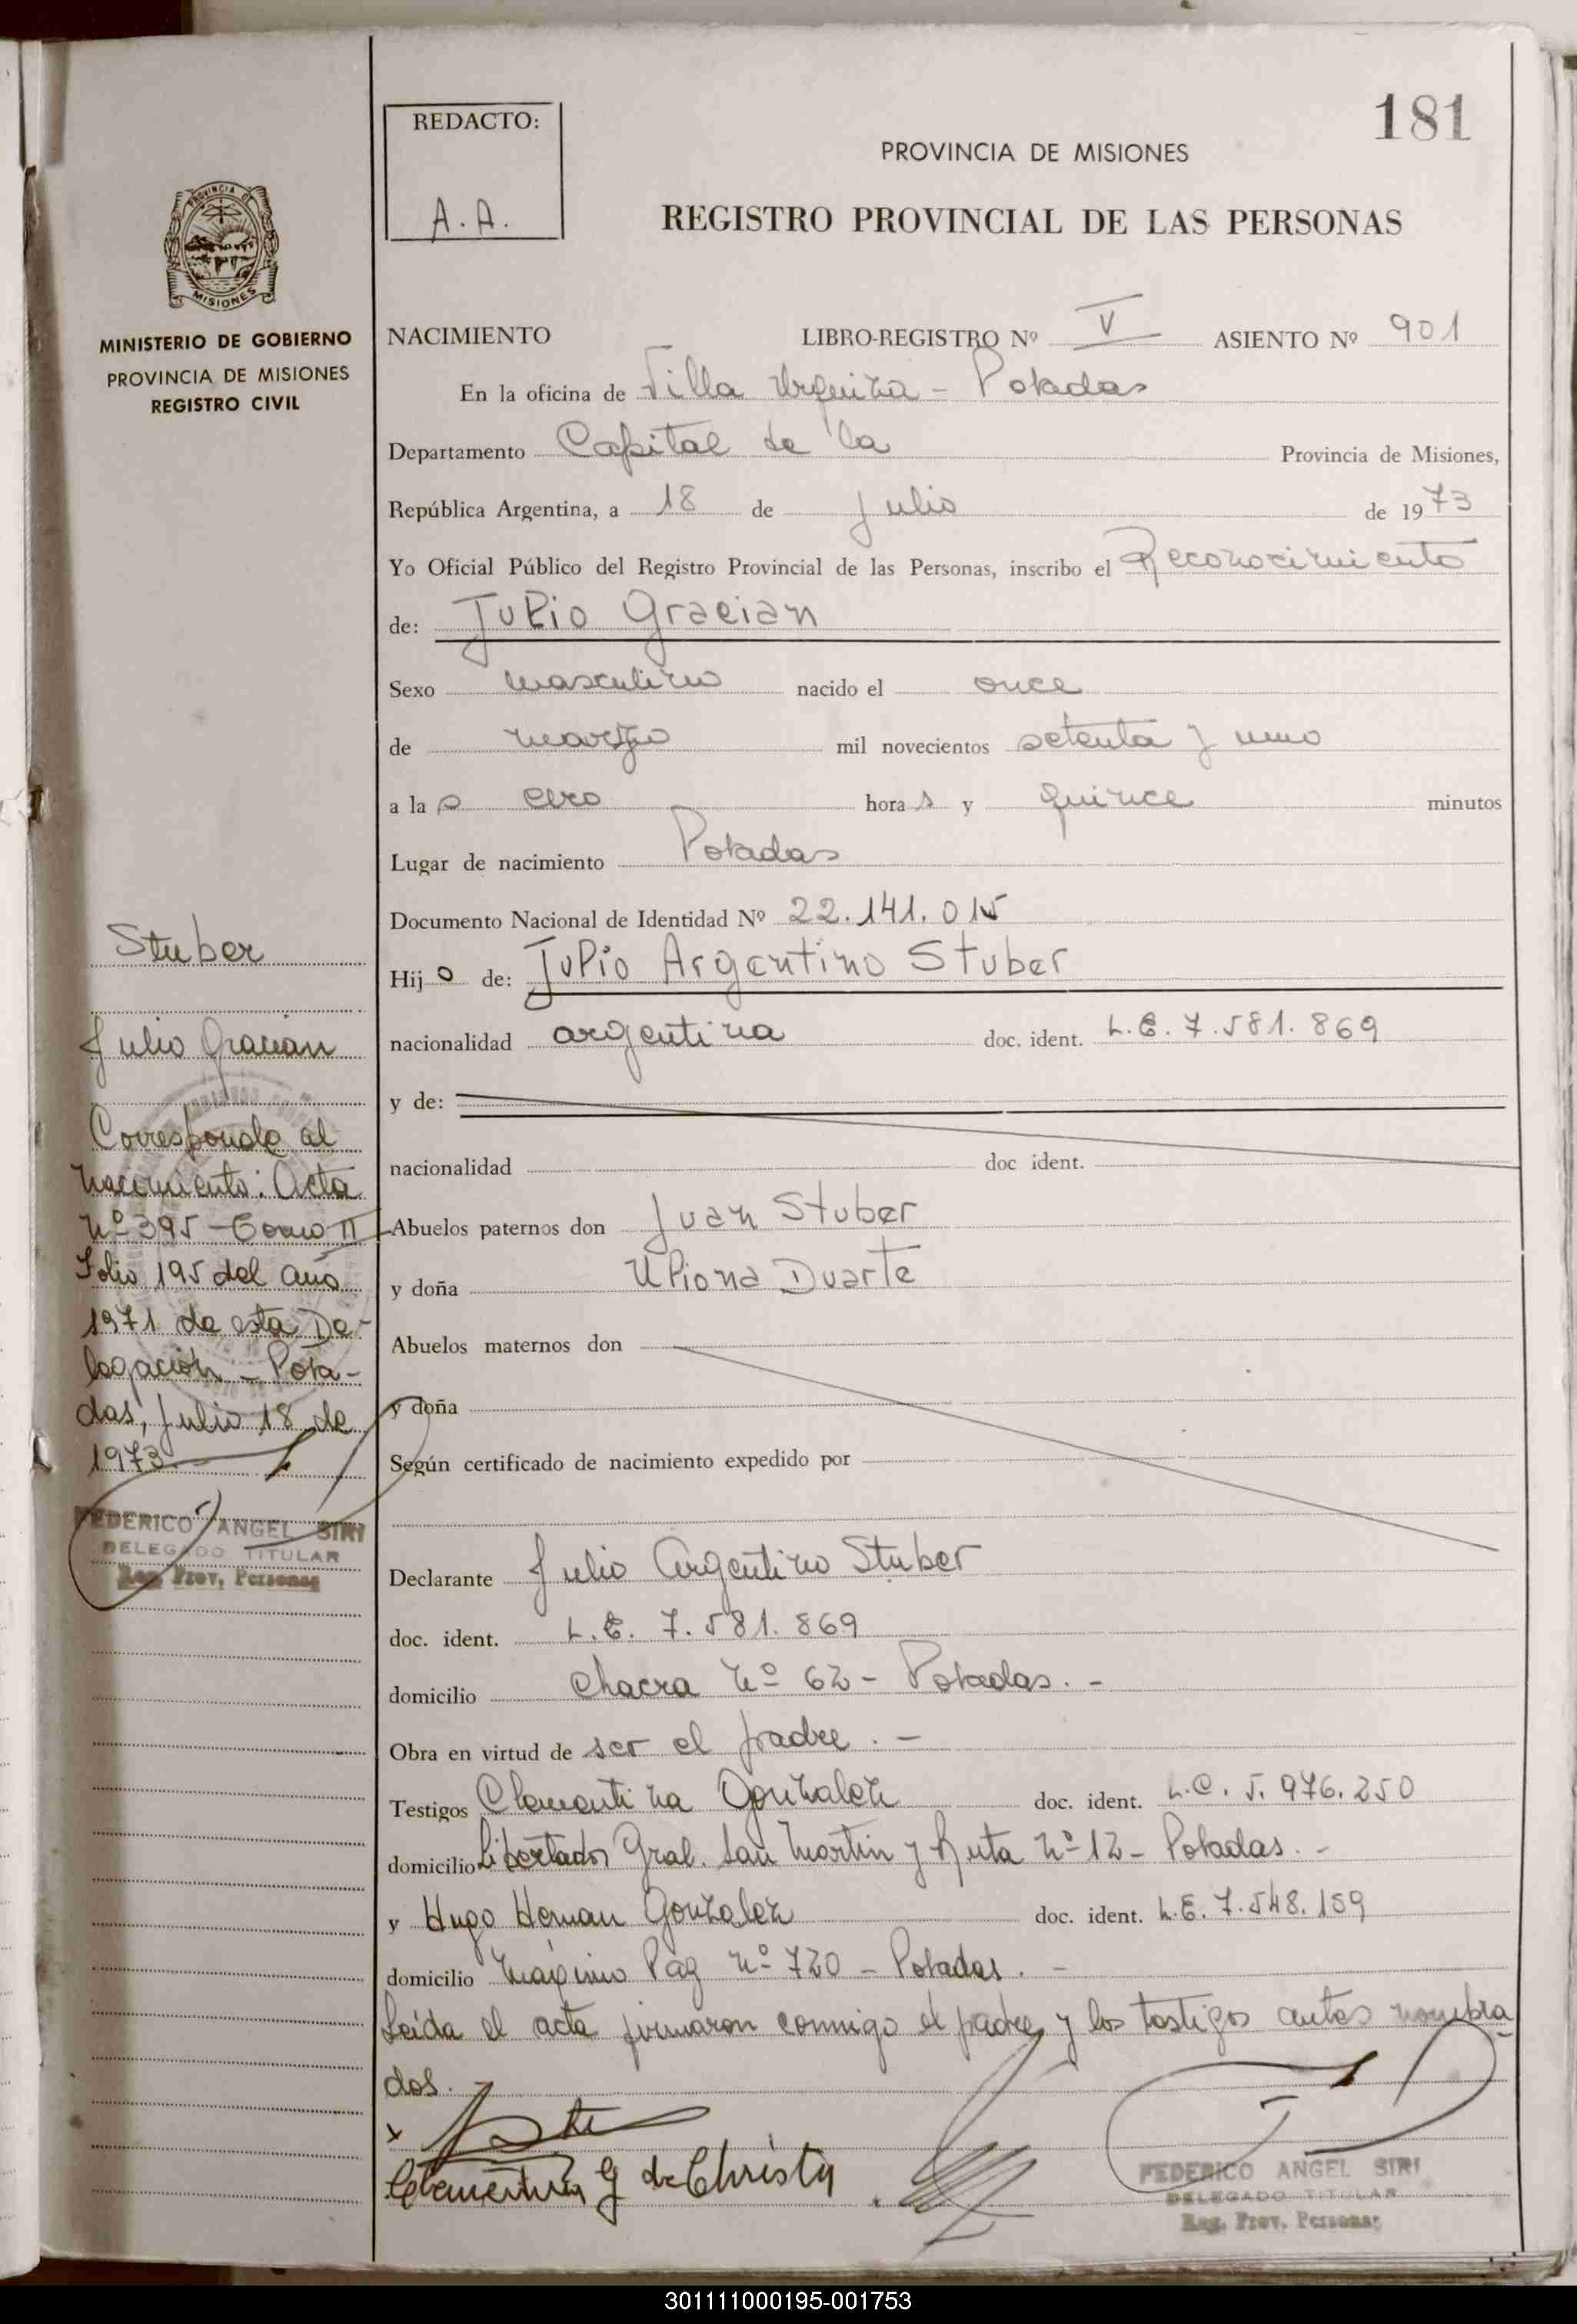 181
REDACTO:
A.A.
PROVINCIA DE MISIONES
REGISTRO PROVINCIAL DE LAS PERSONAS
PROVINCIA DE
MISIONES
MINISTERIO DE GOBIERNO
PROVINCIA DE MISIONES
REGISTRO CIVIL
NACIMIENTO LIBRO-REGISTRO Nº V ASIENTO Nº 901
En la oficina de Villa Urquiza - Posadas
Departamento Capital de la Provincia de Misiones,
República Argentina, a 18 de Julio de 1973
Yo Oficial Público del Registro Provincial de las Personas, inscribo el Reconocimiento
de: Julio Gracian
Sexo masculino nacido el once
de marzo mil novecientos setenta y uno
a las cero horas y quince minutos
Lugar de nacimiento Posadas
Documento Nacional de Identidad Nº 22.141.015
Hijo de: Julio Argentino Stuber
nacionalidad argentina doc. ident. L.E. 7.581.869
y de:
nacionalidad doc ident.
Abuelos paternos don Juan Stuber
y doña Uliona Duarte
Abuelos maternos don
y doña
Según certificado de nacimiento expedido por
Declarante Julio Argentino Stuber
doc. ident. L.E. 7.581.869
domicilio Chacra Nº 62 - Posadas. -
Obra en virtud de ser el padre. -
Testigos Clementina Gonzalez doc. ident. L.C. 5.976.250
domicilio Libertador Gral. San Martin y Ruta Nº 12 - Posadas. -
y Hugo Hernan Gonzalez doc. ident. L.E. 7.548.159
domicilio Máximo Paz Nº 720 - Posadas. -
Leída el acta firmaron conmigo el padre y los testigos antes nombra-
dos.
x
Clementina G de Christy
FEDERICO ANGEL SIRI
DELEGADO TITULAR
Reg. Prov. Personas
Stuber
Julio Gracian
Corresponde al
Nacimiento: Acta
Nº 395 - Tomo II
Folio 195 del año
1971 de esta De-
legación - Posa-
das, Julio 18 de
1973.
FEDERICO ANGEL SIRI
DELEGADO TITULAR
Reg. Prov. Personas
301111000195-001753